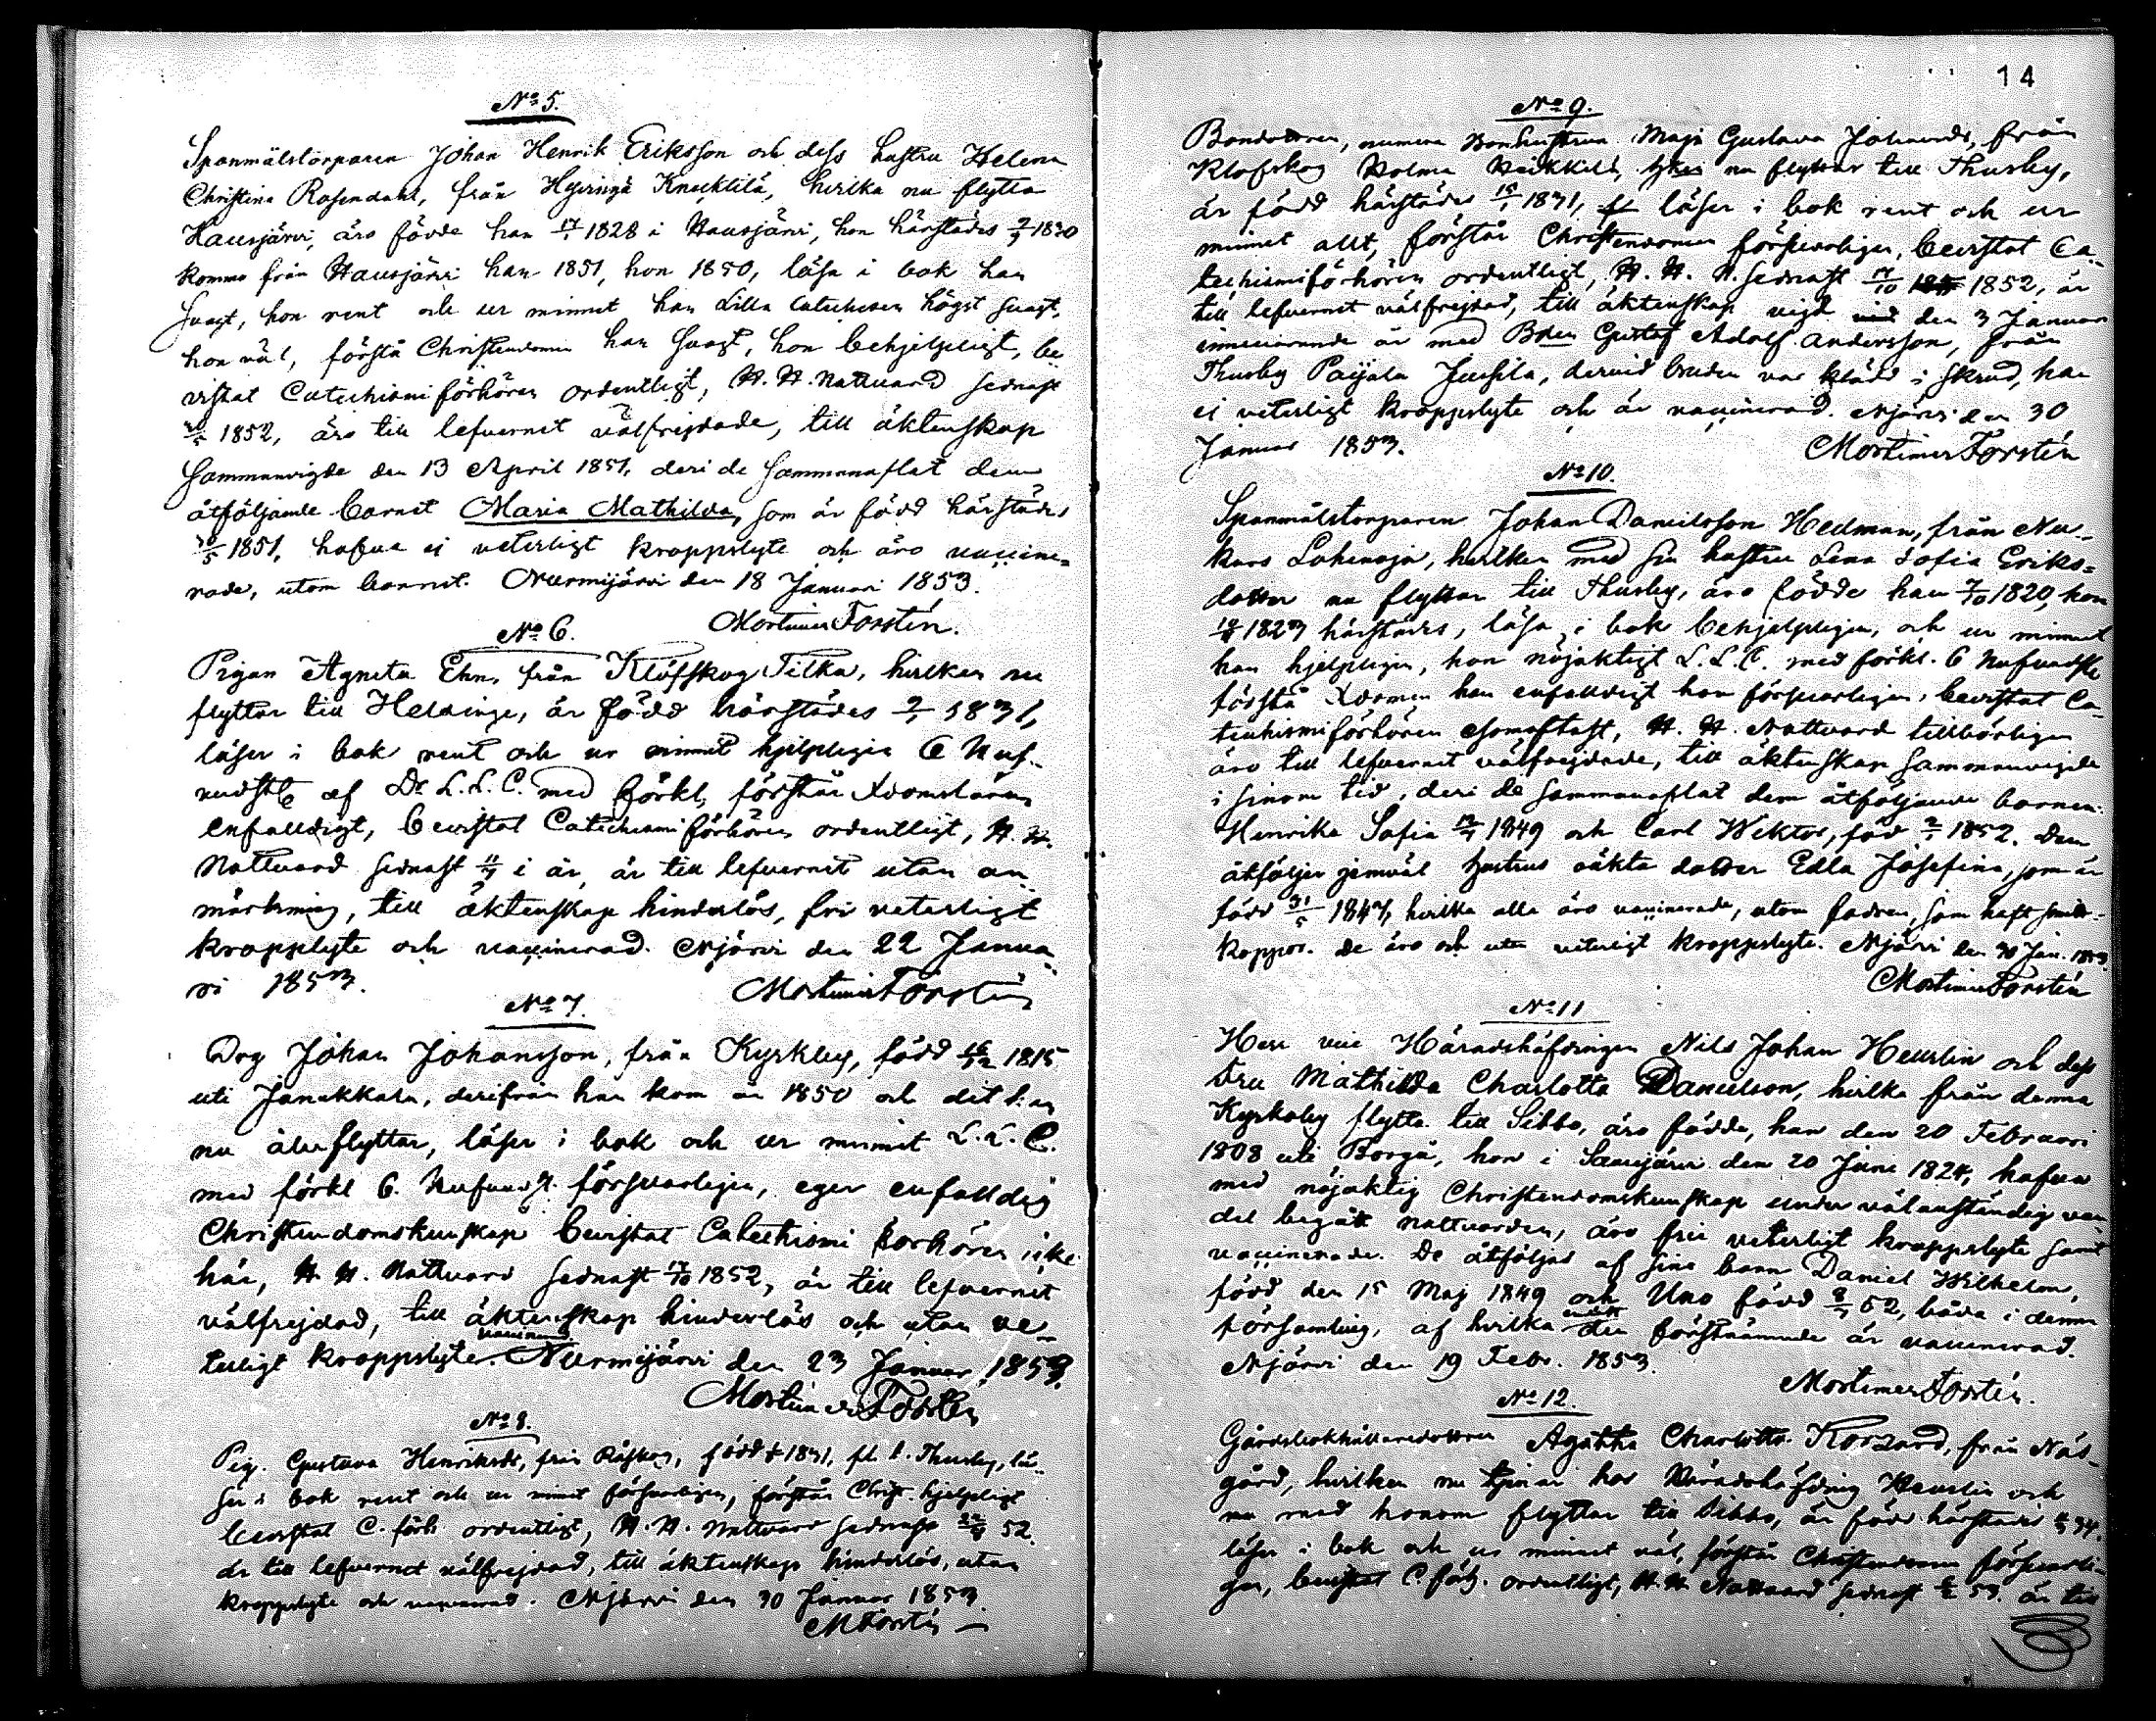 No 5.
Spanmålstorparen Johan Henrik Eriksson och dess hustru Helena
Christina Rosendahl, från Hyvingä Knecktilä, hvilka nu flytta
Hausjärvi, äro födde han 17/1 1828 i Hausjärvi, hon härstädes 1830
komne från Hausjärvi han 1851, hon 1850, läsa i bok han
svagt, hon rent och ur minnet han Lilla Catechesen högst svagt,
hon väl, förstå Christendomen han svagt, hon behjelpligt, be
vistat Catechismiförhören ordentligt, H. H. Nattvard sednast
1852, äro till lefvernet välfrejdade, till äktenskap
sammanvigde den 13 April 1851, deri de sammanaflat dem
åtföljande barnet Maria Mathilda, som är född härstädes
1851, hafva ej veterligt kroppslyte och äro vaccine=
rade, utom barnet. Nurmijärvi den 18 Januari 1853.
Mortimer Forstén.
No 6.
Pigan Agneta Ehn, från Klöfskog Tilka, hvilken nu
flyttar till Helsinge, är född härstädes 1831,
läser i bok rent och ur minnet hjelpligen 6 Huf-
vudst af Dr L. L. C. med förkl, förstår Xdomsläran
enfaldigt, bevistat Catechismiförhören ordentligt, H. H.
Nattvard sednast i år, är till lefvernet utan an
märkning, till äktenskap hinderlös, fri veterligt
kroppslyte och vaccinerad. Njärvi den 22 Janua
ri 1853.
Mortimer Forstén
No 7.
Drg Johan Johansson, från Kyrkby, född 1815
uti Janakkala, derifrån han kom år 1850 och dit han
nu återflyttar, läser i bok och ur minnet L. L. C.
med förkl 6. Hufvudst. försvarligen, eger enfaldig
Christendomskunskap bevistat Catechismi förhören icke
här, H. H. Nattvard sednast 17/10 1852, är till lefvernet
välfrejdad, till äktenskap hinderlös och utan ve-
terligt kroppslyte. vaccinerad Nurmijärvi den 23 Januar 1853.
Mortimer Forstén
No 8.
Pig. Gustava Henriksdr, från Råskog, född 1831, fl. t. Thusby, lä-
ser i bok rent och ur minnet försvarligen, förstår Christ. hjelpligt
bevistat C. förh. ordentligt, H. H. Nattvard sednast 52.
är till lefvernet välfrejdad, till äktenskap hinderlös, utan
kroppslyte och vaccinerad. Njärvi den 30 Januar 1853.
M Forstén
14
No 9.
Bondedotren, numera Bondhustrun Maja Gustava Johansdr, från
Klofskog Holma Heikkilä, nu flyttar till Thusby,
är född härstädes 1831, läser i bok rent och ur
minnet allt, förstår Christendomen försvarligen, bevistat Ca
techismiförhören ordentligt, H. H. N. sednast 17/10 1852, är
till lefvernet välfrejdad, till äktenskap vigd den 3 Januar
innevarande år med Bden Gustaf Adolf Andersson, från
Thusby Paijala Jussila, dervid bruden var klädd i skrud, har
ej veterligt kroppslyte och är vaccinerad. Njärvi den 30
Januar 1853.
Mortimer Forstén
No 10.
Spanmålstorparen Johan Danielsson Hedman, från Nu-
kars Lohenoja, hvilken med sin hustru Lena Sofia Eriks=
dotter nu flyttar till Thusby, äro födde han 7/10 1820, hon
1823 härstädes, läsa i bok behjelpligen, och ur minnet
han hjelpligen, hon nöjaktigt L. L. C. med förkl. 6 Hufvudst
förstå Xdomen han enfaldigt hon försvarligen, bevistat Ca-
techismiförhören esomoftast, H. H. Nattvard tillbörligen
äro till lefvernet välfrejdade, till äktenskap sammanvigde
i sinom tid, deri de sammanaflat dem åtföljande barnen:
Henrika Sofia 1849 och Carl Wiktor, föd 1852. Dem
åtföljer jemväl hustrus oäkta dotter Edla Josefina, som är
född 31/5 1847, hvilka alla äro vaccinerade, utom fadren, som haft smitt-
koppor. de äro och utan veterligt kroppslyte. Njärvi den 30 Jan. 1853.
Mortimer Forstén
No 11
Herr vice Häradshöfdingen Nils Johan Heurlin och dess
Fru Mathilda Charlotta Danielson, hvilka från denna
Kyrkoby flytta till Sibbo, äro födde, han den 20 Februari
1808 uti Borgå, hon i den 20 Juni 1824, hafva
med nöjaktig Christendomskunskap under välanständig van
del begått nattvarden, äro fria veterligt kroppslyte samt
vaccinerade. De åtföljas af sina barn Daniel Wilhelm,
född den 15 Maj 1849 och Uno född 52, båda i denna
församling, af hvilka endast den förstnämnde är vaccinerad.
Njärvi den 19 Febr. 1853.
Mortimer Forstén.
No 12.
Gårdsbokhållaredottren Agatha Charlotta från Näs-
gård, hvilken nu tjenar hos Häradshöfding Heurlin och
nu med honom flyttar till Sibbo, är född härstädes 34.
läser i bok och ur minnet väl, förstår Christendomen försvarli-
gen, bevistat C. förh. ordentligt, H. H. Nattvard sednast 53. är till